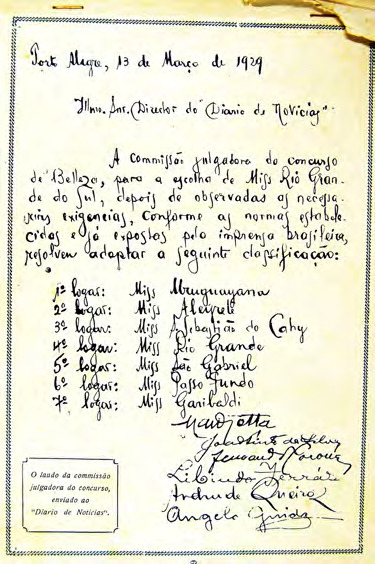 Porto Alegre, 13 de Março de 1929
Illmo. Snr. Director do "Diario de Noticias"
A commissão julgadora do concurso
de Belleza, para a escolha de Miss Rio Gran-
de do Sul, depois de observadas as neces
sarias exigencias, conforme as normas estabele-
cidas e já expostas pela imprensa brasileira,
resolveu adoptar a seguinte classificação:
1º logar: Miss Uruguayana
2º logar: Miss Alegrete
3º logar: Miss S. Sebastião do Cahy
4º logar: Miss Rio Grande
5º logar: Miss São Gabriel
6º logar: Miss Passo Fundo
7º logar: Miss Garibaldi
João Pinto da Silva
Fernando Corona
Libindo Ferrás
de Queiroz
Angelo Guido
O laudo da commissão
julgadora do concurso,
enviado ao
"Diario de Noticias".